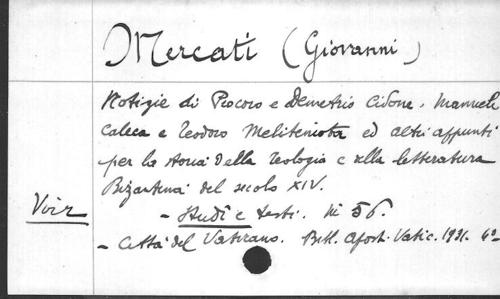 Mercati (Giovanni)
Notizie di Procoro e Demetrio Cidone, Manuele
Caleca e Teodoro Meliteniota ed altri appunti
per la storia della teologia e della letteratura
Bizantina del secolo XIV.
Voir
- Studi e testi. Ni 56.
- Città del Vaticano. Bibl. Apost. Vatic. 1931. 4º